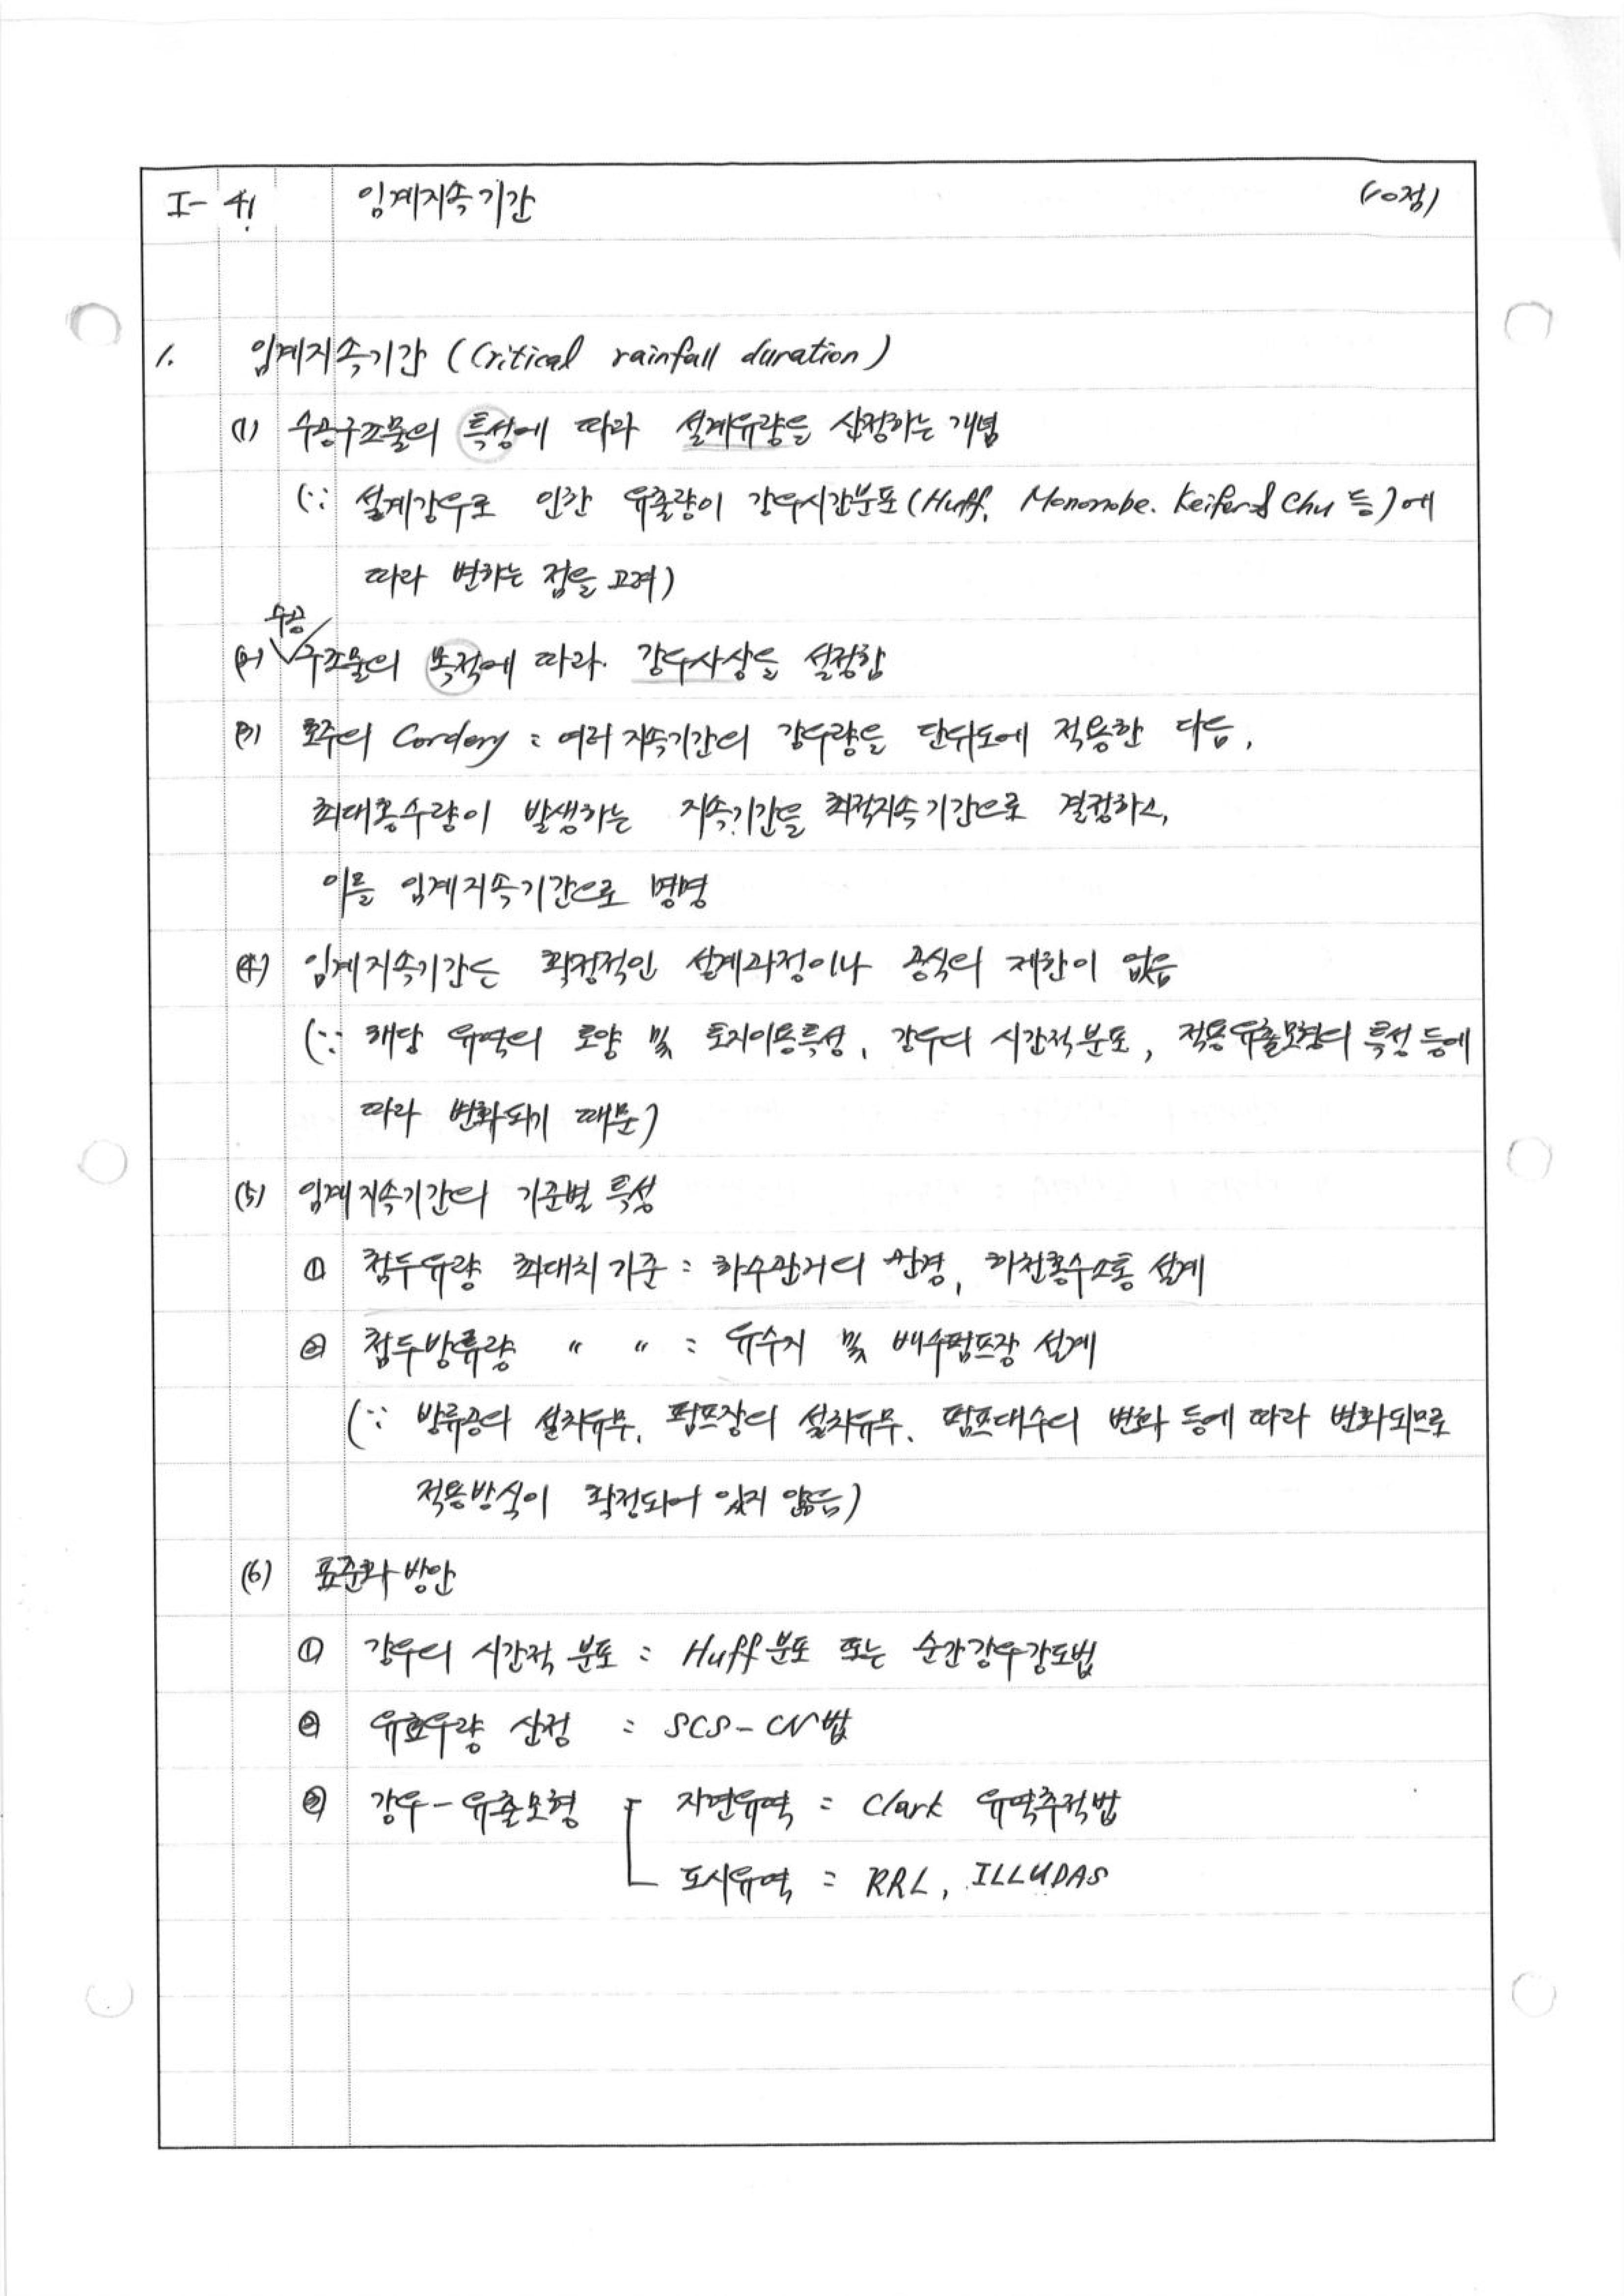 I- 4! 임계지속기간 (10점)
1. 임계지속기간 (Critical rainfall duration)
(1) 수공구조물의 특성에 따라 설계유량을 산정하는 개념
(∵ 설계강우로 인한 유출량이 강우시간분포(Huff, Mononobe. Keifer & Chu 등)에
따라 변하는 점을 고려)
수공
(2) 구조물의 목적에 따라. 강우사상을 설정함
(3) 호주의 Cordery : 여러 지속기간의 강우량을 단위도에 적용한 다음,
최대홍수량이 발생하는 지속기간을 최적지속기간으로 결정하고,
이를 임계지속기간으로 명명
(4) 임계지속기간은 확정적인 설계과정이나 공식의 제한이 없음
(∵ 해당 유역의 토양 및 토지이용특성, 강우의 시간적 분포, 적용유출모형의 특성 등에
따라 변화되기 때문)
(5) 임계지속기간의 기준별 특성
① 첨두유량 최대치 기준 : 하수관거의 관경, 하천홍수소통 설계
② 첨두방류량 〃 〃 : 유수지 및 배수펌프장 설계
(∵ 방류공의 설치유무, 펌프장의 설치유무, 펌프대수의 변화 등에 따라 변화되므로
적용방식이 확정되어 있지 않음)
(6) 표준화 방안
① 강우의 시간적 분포 : Huff 분포 또는 순간강우강도법
② 유효우량 산정 : SCS-CN법
③ 강우-유출모형 자연유역 : Clark 유역추적법
도시유역 : RRL, ILLUDAS